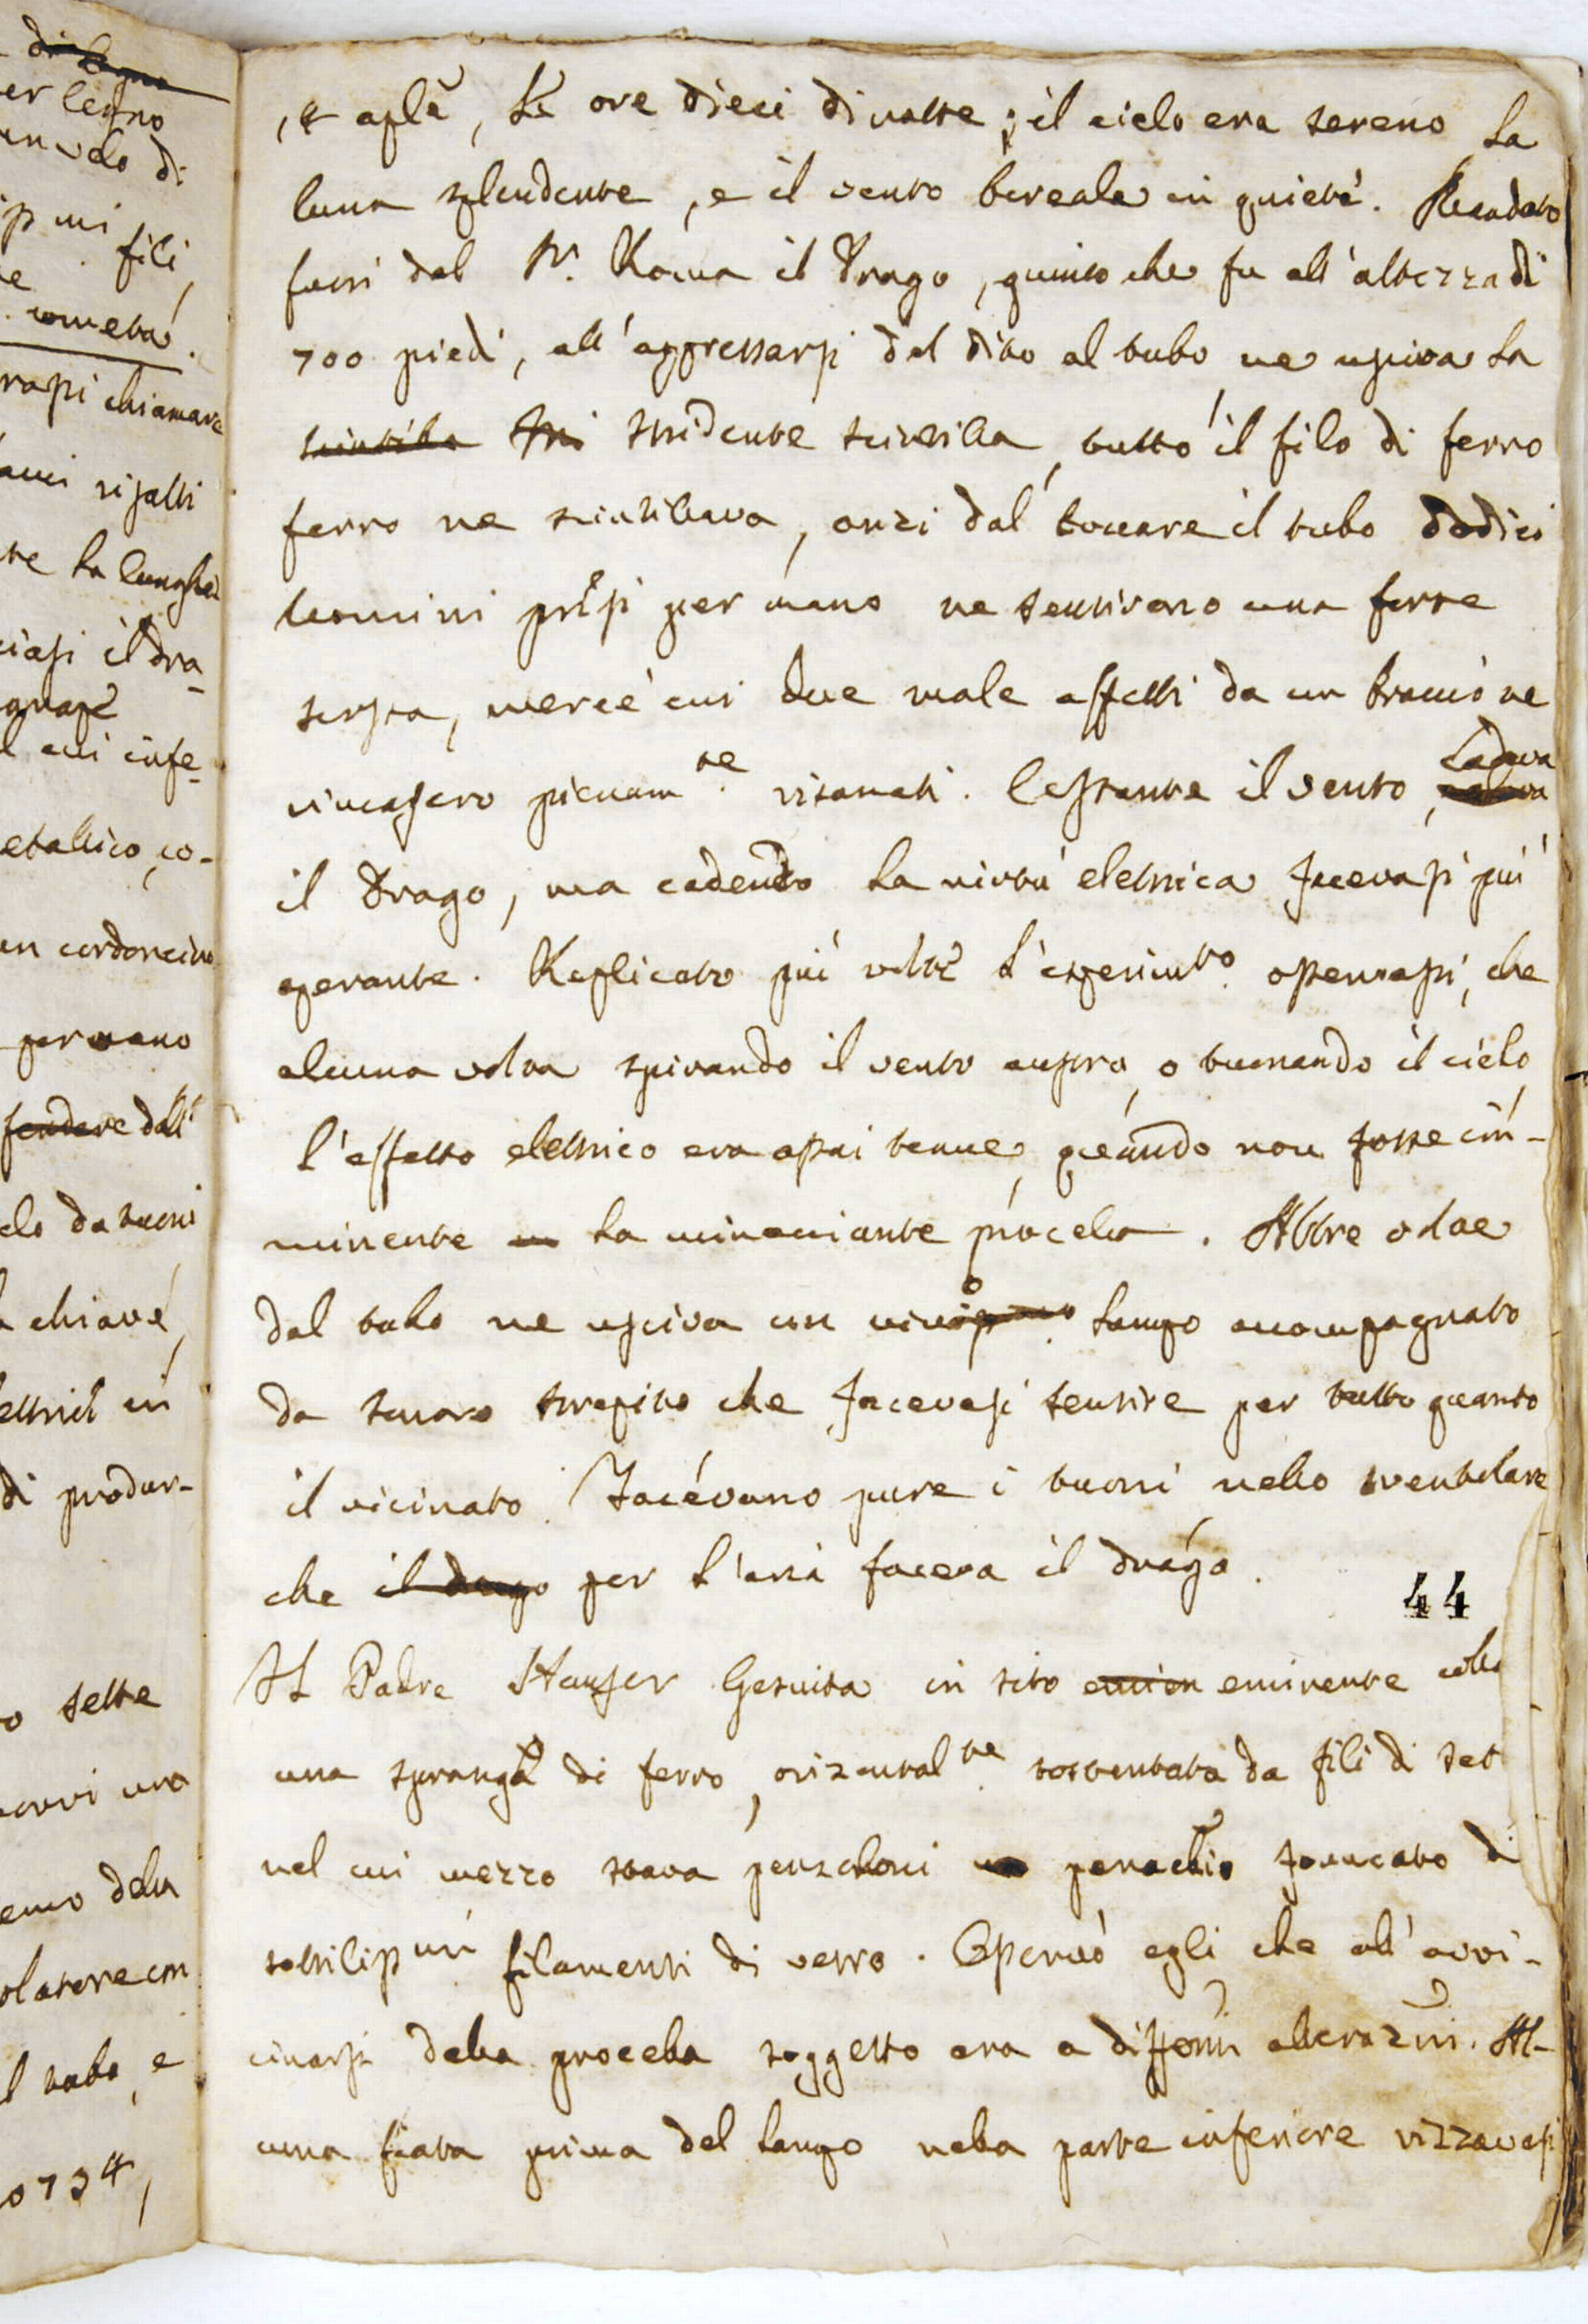 di legno
er legno
un velo di
ip mi
fili,
cometa.
rasi chiamare
risalti
te la lunghez
ciasi il dra_
l cui infe_
etallico, co-
un cordoncino
per mano
fendere dall'
elo da tuoni
a chiave,
di produr-
o sette
emo della
olatore con
l tubo, e
o 734,
14 aple, le ore dieci di notte; il cielo era sereno la
luna splendente, e il vento boreale in quiete. Mandato
fuori dal Sr. Roma il Drago, giunto che fu all'altezza di
700 piedi, all'appressarsi del dito al tubo ne usciva la
scintilla stri stridente scintilla, tutto il filo di ferro
ferro ne scintillava, anzi dal toccare il tubo dodici
uomini presi per mano ne sentirono una forte
scossa, mercè cui due male affetti da un braccio ne
rimasero pienam.te risanati. Cessante il vento, cadeva
il Drago, ma cadendo la virtù elettrica facevasi più
operante. Replicato più volte l'esperimto. osservasi, che
alcuna volta spirando il vento austro, o tuonando il cielo,
l'effetto elettrico era assai tenue, quando non fosse im-
minente la minacciante procella. Altre volte
dal tubo ne usciva un vivo lampo accompagnato
da sonoro strepito che facevasi sentire per tutto quanto
il vicinato. Tacévano pure i tuoni nello sventolare
che il drago per l'aria faceva il drago.
44
Il Padre Hauser Gesuita in sito emin eminente collo
una spranga di ferro, orizontalte. sostentata da fili di set
nel cui mezzo stava penzoloni un penachio formato di
sottilissimi filamenti di vetro. Osservò egli che all'avvi-
cinarsi della procella soggetto era a differenti alterazni. Al-
cuna fiata prima del lampo nella parte inferiore rizzavasi